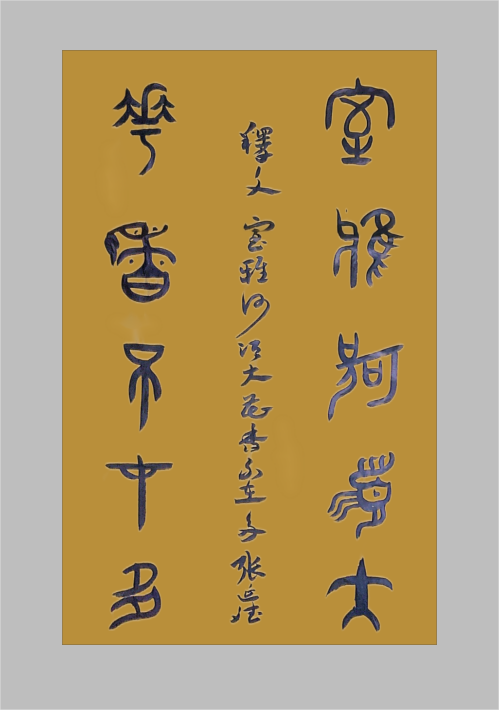 室雅何須大
釋文 室雅何須大花香不在多 張延
花香不在多